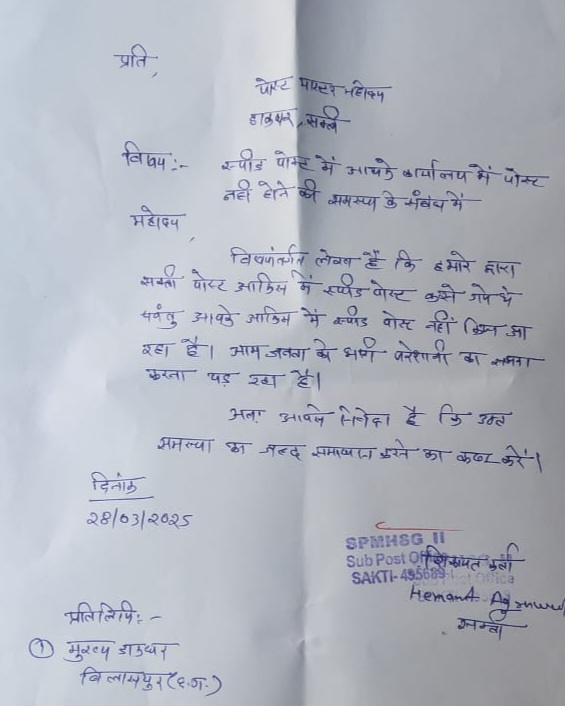 प्रति,
पोस्ट मास्टर महोदय
डाकघर, सक्ती
विषय:- स्पीड पोस्ट में आपके कार्यालय में पोस्ट
नही होने की समस्या के संबंध में
महोदय,
विषयांतर्गत लेख है कि हमारे द्वारा
सक्ती पोस्ट आफिस में स्पीड पोस्ट करने गये थे
परंतु आपके आफिस में स्पीड पोस्ट नहीं किया जा
रहा है। आम जनता को भारी परेशानी का सामना
करना पड़ रहा है।
अतः आपसे निवेदन है कि उक्त
समस्या का जल्द समाधान करने का कष्ट करें।
दिनांक
28/03/2025
SPMHSG II
Sub Post Office
SAKTI-495689
शिकायत कर्ता
Hemant Agrawal
सक्ती
प्रतिलिपि:-
① मुख्य डाकघर
बिलासपुर (छ.ग.)